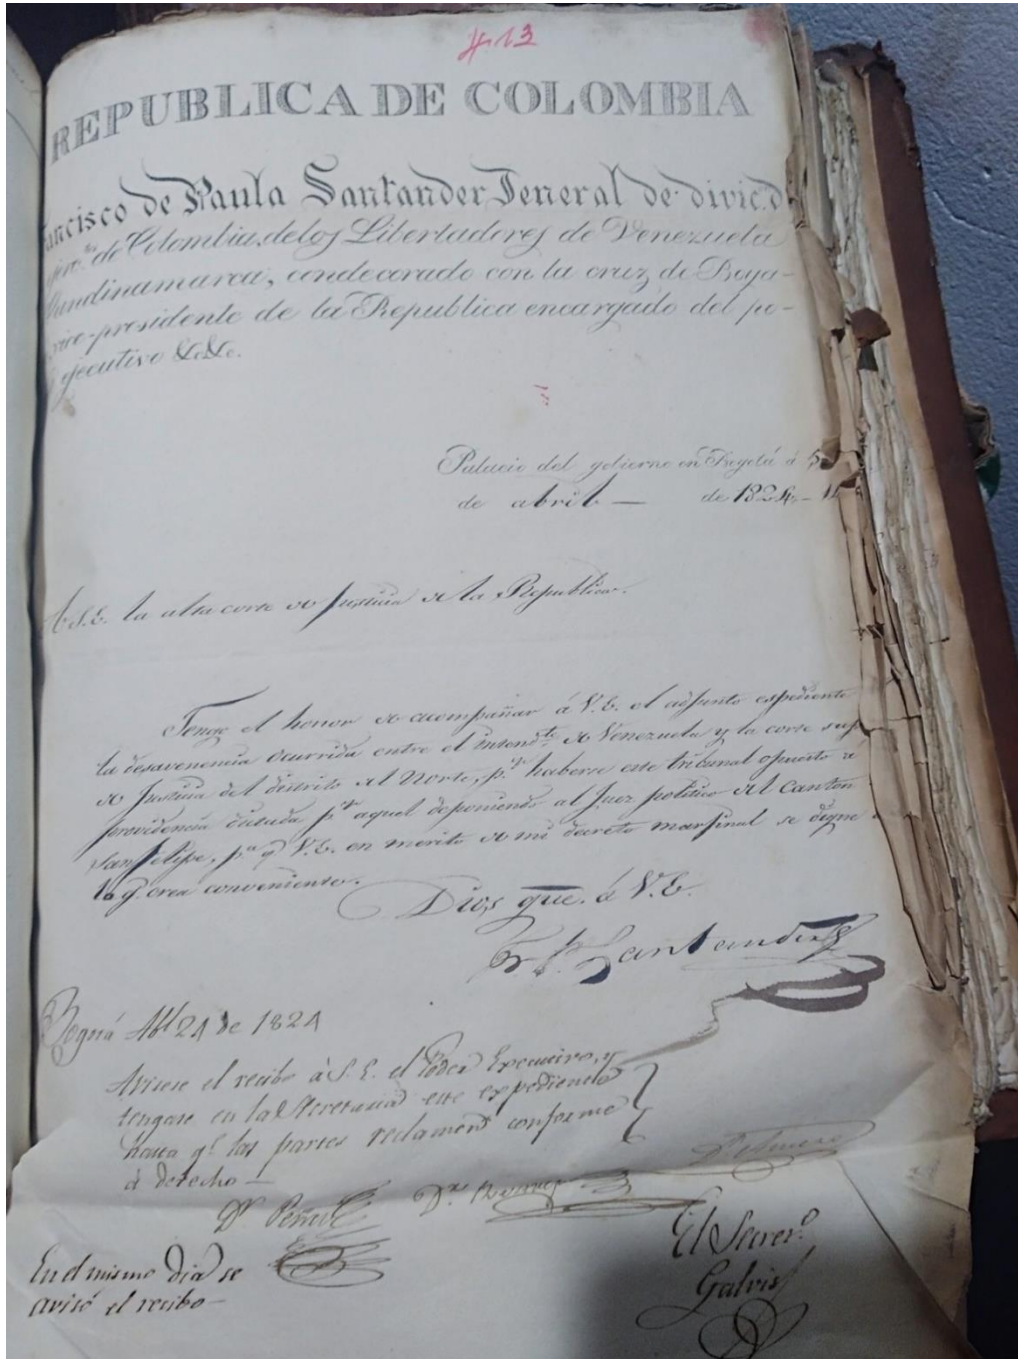 #. 13
REPUBLICA DE COLOMBIA
ancisco de Paula Santander Jeneral de divic.
de Colombia, de los Libertadores de Venezuela
undinamarca, condecorado con la cruz de Boya-
vice-presidente de la Republica encargado del po-
ejecutivo &c&c.
Palacio del gobierno en Bogotá á 5
de abril — de 1824 -
A S.E. la alta corte de Justicia de la Republica.
Tengo el honor de acompañar á V.E. el adjunto expediente
la desavenencia ocurrida entre el intend.te de Venezuela y la corte sup
de Justicia del distrito del Norte, p.r haberse este tribunal opuesto á
providencia dictada p.r aquel deponiendo al Juez politico del Canton
San Felipe, p.a q. V.E. en merito de mi decreto marginal se digne
lo q. crea conveniente.
Dios gue. á V.E.
Fr. P. Santander
Bogotá Abl 24 de 1824
Avisese el recibo á S.E. el Poder Executivo, y
tengase en la Secretaria este expediente
hasta q.e las partes reclamen conforme
á derecho —
Dr. Peña
El Secret.o
Galvis
En el mismo dia se
avisó el recibo —